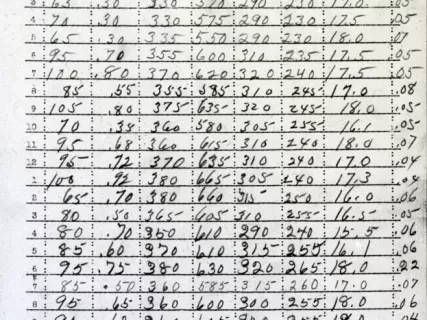 65 .30 330 570 290 230 17.0 .05
4 70 .30 330 575 290 230 17.5 .05
5 65 .30 335 550 290 230 18.0 .07
6 95 .70 355 600 310 235 17.5 .05
7 100 .80 370 620 320 240 17.5 .05
8 85 .55 355 585 310 245 17.0 .08
9 105 .80 375 635 320 245 18.0 .05
10 70 .35 360 580 305 255 16.1 .05
11 95 .68 360 615 310 240 18.0 .07
12 95 .72 370 635 310 240 17.0 .04
1 100 .92 380 665 305 240 17.3 .04
2 65 .70 380 660 315 250 16.0 .06
3 80 .50 365 605 310 255 16.5 .05
4 80 .70 350 610 290 240 15.5 .06
5 85 .60 370 610 315 255 16.1 .06
6 95 .75 380 630 320 265 18.0 .22
7 85 .50 360 585 315 260 17.0 .07
8 95 .65 360 600 300 255 18.0 .06
18.0 .04